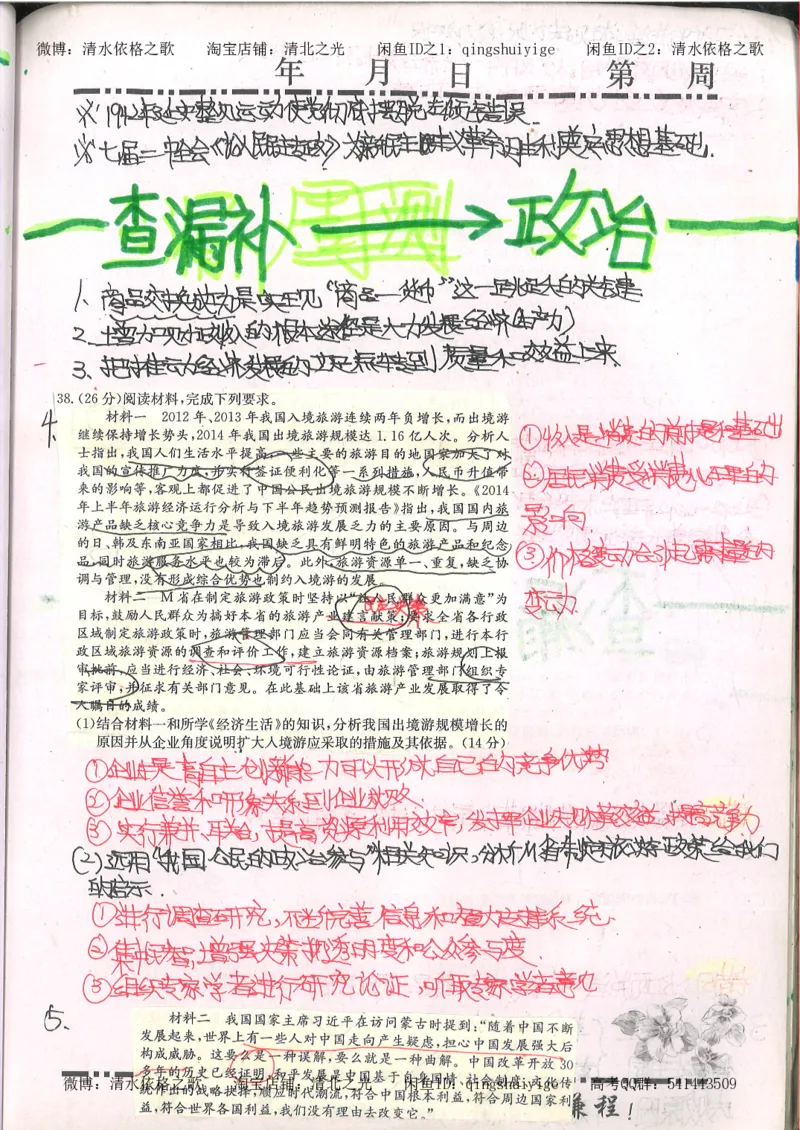 微博：清水依格之歌 淘宝店铺：清北之光 闲鱼ID之1：qingshuiyige 闲鱼ID之2：清水依格之歌
年 月 日 第 周
※ 1942年延安整风运动使党彻底摆脱左倾错误.
※ 七届二中全会《论人民民主专政》为新民主主义革命胜利奠定思想基础.
查漏补 → 政治
1. 商品交换成功是实现“商品—货币”这一跳跃的关键
2. 增加财政收入的根本途径是大力发展经济(生产力)
3. 把推动经济发展的立足点转到质量和效益上来.
4.
38.(26分)阅读材料,完成下列要求。
材料一 2012年、2013年我国入境旅游连续两年负增长,而出境游
继续保持增长势头,2014年我国出境旅游规模达1.16亿人次。分析人
士指出,我国人们生活水平提高、一些主要的旅游目的地国家加大了对
我国的宣传推广力度,步实行签证便利化等一系列措施,人民币升值带
来的影响等,客观上都促进了中国公民出境旅游规模不断增长。《2014
年上半年旅游经济运行分析与下半年趋势预测报告》指出,我国国内旅
游产品缺乏核心竞争力是导致入境旅游发展乏力的主要原因。与周边
的日、韩及东南亚国家相比,我国缺乏具有鲜明特色的旅游产品和纪念
品,同时旅游服务水平也较为滞后。此外,旅游资源单一、重复,缺乏协
调与管理,没有形成综合优势也制约入境游的发展。
①收入是消费的前提和基础
②居民消费受消费心理的
影响.
③价格变动会引起需求量的
变动.
材料二 M省在制定旅游政策时坚持以“让人民群众更加满意”为
目标,鼓励人民群众为搞好本省的旅游产业建言献策;要求全省各行政
区域制定旅游政策时,旅游管理部门应当会同有关管理部门,进行本行
政区域旅游资源的调查和评价工作,建立旅游资源档案;旅游规划上报
审批前,应当进行经济、社会、环境可行性论证,由旅游管理部门组织专
家评审,并征求有关部门意见。在此基础上该省旅游产业发展取得了令
人瞩目的成绩。
(1)结合材料一和所学《经济生活》的知识,分析我国出境游规模增长的
原因并从企业角度说明扩大入境游应采取的措施及其依据。(14分)
①企业提高自主创新能力可以形成自己的竞争优势
②企业信誉和形象关系到企业成败.
③实行兼并、联合,提高资源利用效率,发挥企业规模效益,提高竞争力
(2)运用“我国公民的政治参与”相关知识,分析M省制定旅游政策给我们
的启示.
①进行调查研究,不断完善信息和智力支持系统.
②集中民智,增强决策透明度和公众参与度.
③组织专家学者进行研究论证,听取专家学者意见
5.
材料二 我国国家主席习近平在访问蒙古时提到:“随着中国不断
发展起来,世界上有一些人对中国走向产生疑虑,担心中国发展强大后
构成威胁。这要么是一种误解,要么就是一种曲解。中国改革开放30
多年的历史已经证明,和平发展是中国基于自身国情、社会制度、文化传
统作出的战略抉择,顺应时代潮流,符合中国根本利益,符合周边国家利
益,符合世界各国利益,我们没有理由去改变它。”
微博：清水依格之歌 淘宝店铺：清北之光 闲鱼ID：qingshuiyige 高考QQ群：541443509
兼程！